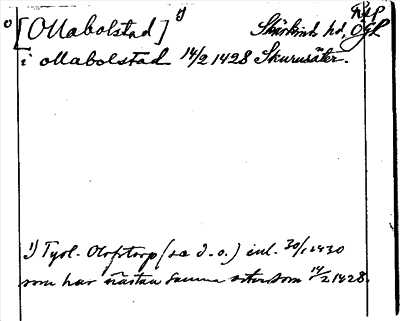 [Ollabolstad] 1) Skärkinds hd, Ögl
i ollabolstad 14/2 1428 Skurusäter.
1) Tyol. Olofstorp (se d.o.) enl. 20/1 1430
som har nästan samma som 14/2 1428.